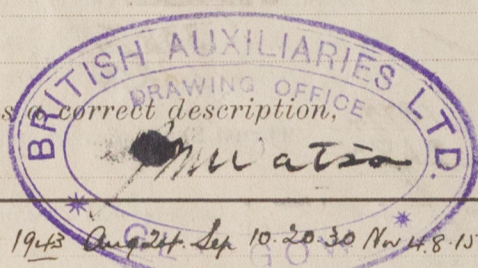 BRITISH AUXILIARIES LTD.
DRAWING OFFICE
s a correct description,
Watson
1943 Aug 24. Sep 10. 20. 30 Nov 4. 8. 15